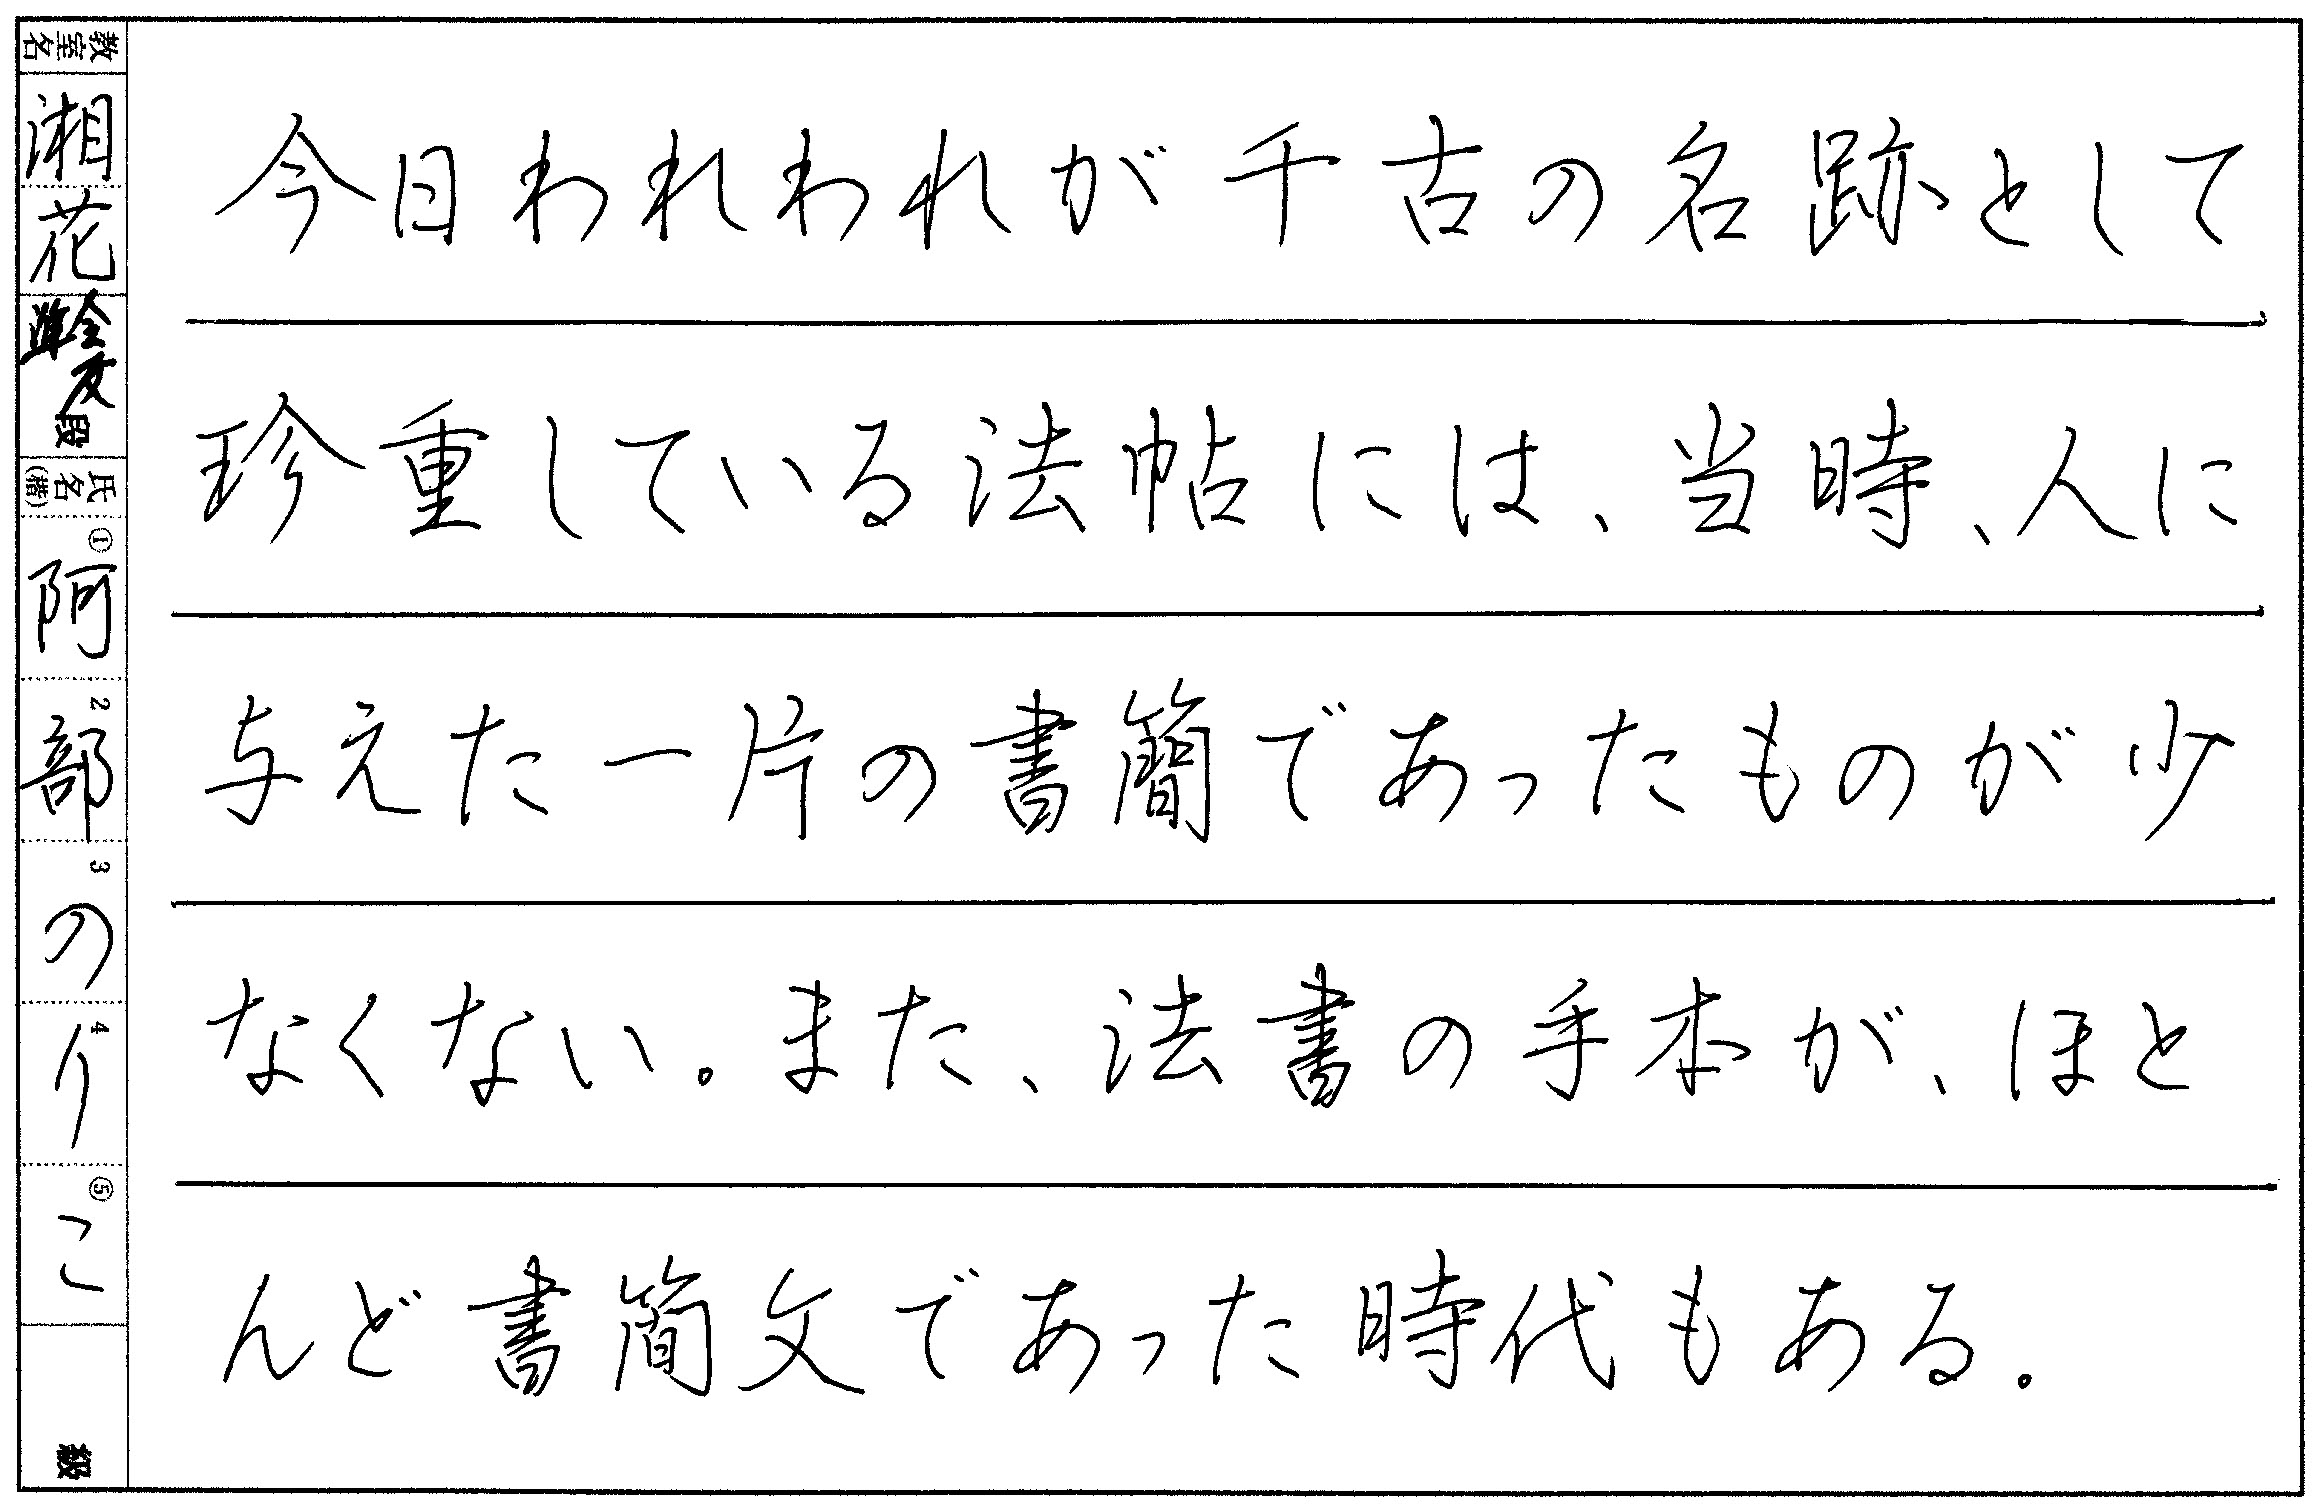 今日われわれが千古の名跡として
珍重している法帖には、当時、人に
与えた一片の書簡であったものが少
なくない。また、法書の手本が、ほと
んど書簡文であった時代もある。
教室名
湘花
段
氏名(楷)
①阿
2部
3の
4り
⑤こ
級